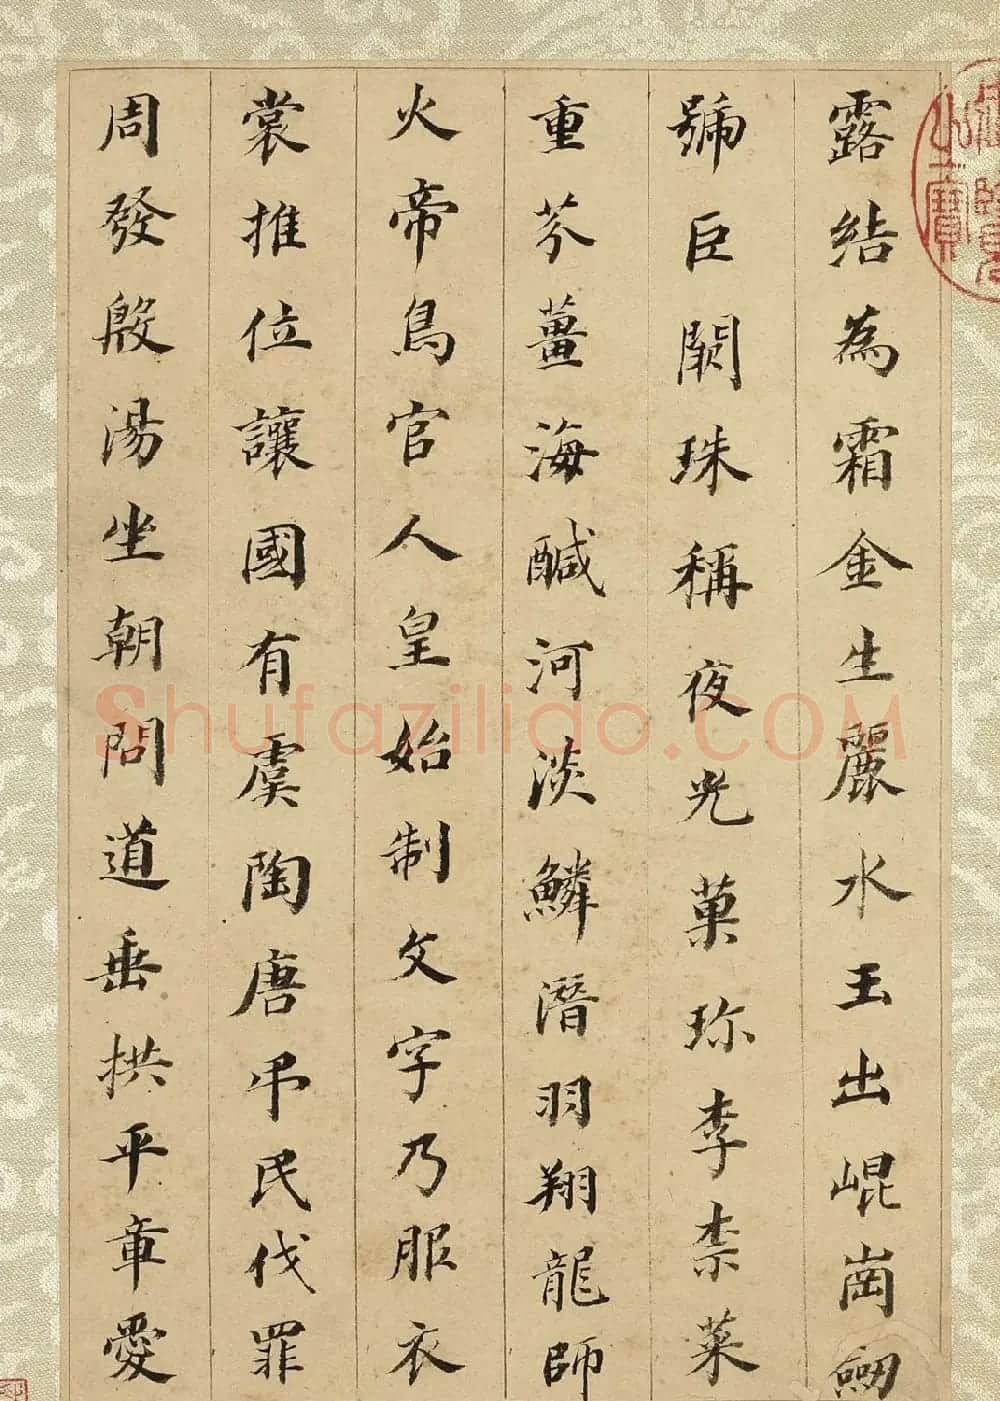 露結為霜金生麗水玉出崐崗劒
號巨闕珠稱夜光菓珎李柰菜
重芥薑海醎河淡鱗潛羽翔龍師
火帝鳥官人皇始制文字乃服衣
裳推位讓國有虞陶唐弔民伐罪
周發殷湯坐朝問道垂拱平章愛
Shufaziliao.COM